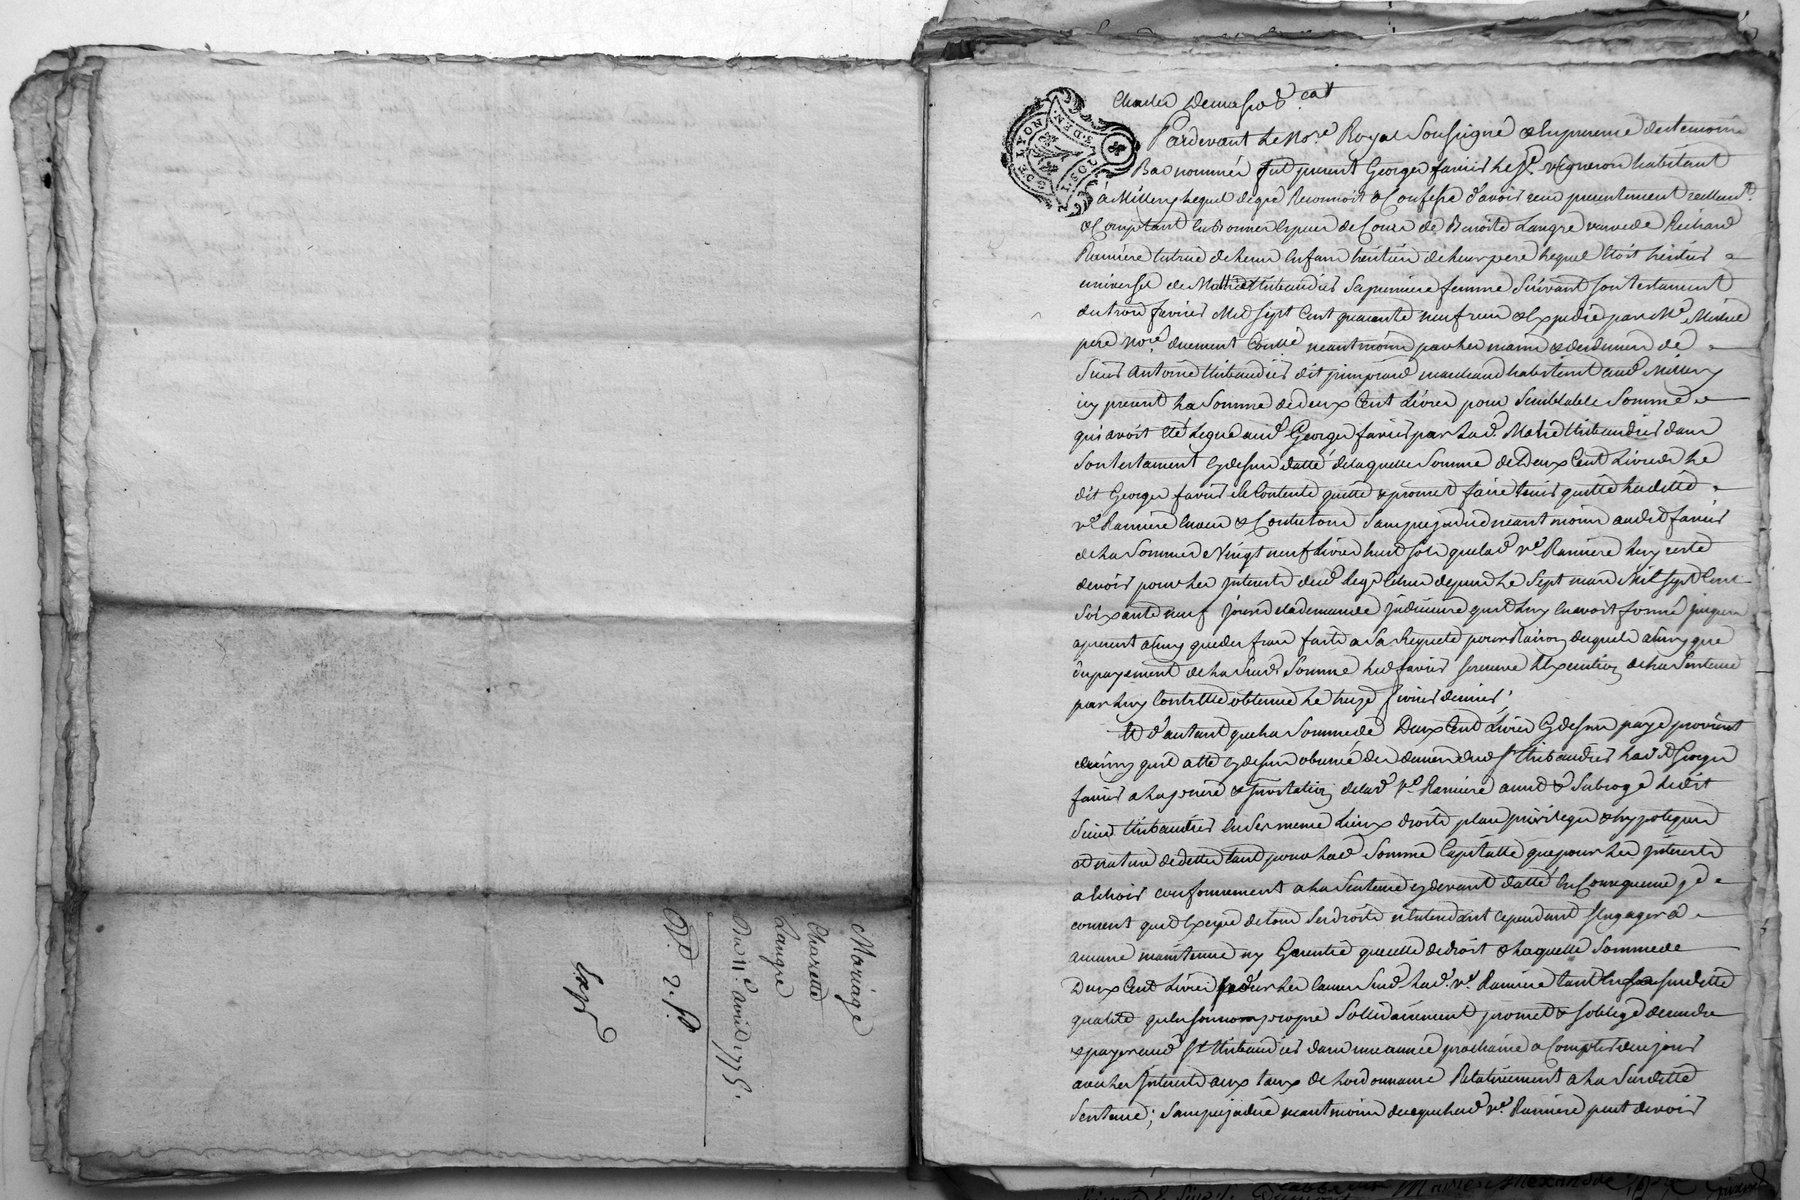 Mariage
Charette
Langre
Du 11e. avril 1775.
Exp
G. DE LYON
2. SOLS. 3. DEN.
Pardevant Le Nore. Royal Soussigné & En presence des temoins
Bas nommés fut present George favier vigneron habitant
à Millery Lequel de gré Reconnoit & Confesse d'avoir reçu presentement reellemt.
& Comptant en bonnes Especes de Cours de Benoite Langre veuve de Richard
Ramiere tutrice de Leurs Enfans heritiers de Leur pere Lequel Etoit heritier
universel de Marie thibaudier Sa premiere femme Suivant son testament
du trois fevrier Mil Sept Cent quarante neuf reçu & Expedié par Me.
pere Nore. duement Contlé neantmoins par Les mains & des deniers de
Sieur Antoine thibaudier dit marchand habitant aud. Millery
icy present La Somme de deux Cent Livres pour Semblable Somme
qui avoit Eté Legué aud. George favier par Lad. Marie thibaudier dans
Son testament Cydessus datté de laquelle Somme de Deux Cent Livres Le
dit George favier Se Contente quitte & promet faire tenir quitte Laditte
ve. Ramiere Envers & Contre tous Sans prejudice neantmoins audit favier
de La Somme de Vingt neuf Livres huit sols que lad. ve. Ramiere Luy reste
devoir pour Les jnterets dud. Legs Echus depuis Le Sept mars Mil Sept Cent
Soixante neuf jour de la demande judiciaire qu'il Luy En avoit formé jusques
apresent ainsy que des frais faits a Sa Requete pour Raison desquels ainsy que
du payement de La Susd. Somme Led. favier Se reserve L'Execution de La Sentence
par Luy Contr'Elle obtenue Le treize fevrier dernier;
Et d'autant que La Somme de Deux Cent Livres Cydessus payé provient
ainsy qu'il a Eté Cydessus observé des deniers dud. Sr. thibaudier Led. George
favier a La priere & de lad. ve. Ramiere a mis & Subrogé Ledit
Sieur thibaudier En Ses meme Lieux droits place privileges & hypoteques
& nature de dettes tant pour Lad. Somme Capitalle que pour Les jnterets
a Echoir conformement a La Sentence cydevant datté En Consequence
consent qu'il Exerce de tous Ses droits n'Entendant cependant S'Engager a
aucune maintenue ny Garentie que celle de droit & Laquelle Somme de
Deux Cent Livres pour Les causes Susd. Lad. ve. Ramiere tant En Sa Susditte
qualité qu'En Son nom propre Sollidairement promet & s'oblige de rendre
& payer aud. Sr. thibaudier dans une année prochaine a Compter de ce jour
avec Les jnterets aux taux de L'ordonnance Relativement a La Susditte
Sentence; Sans prejudice neantmoins de ce que Lad. ve. Ramiere peut devoir